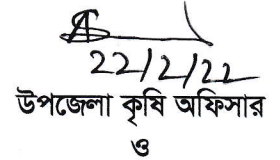 22/2/22
উপজেলা কৃষি অফিসার
ও